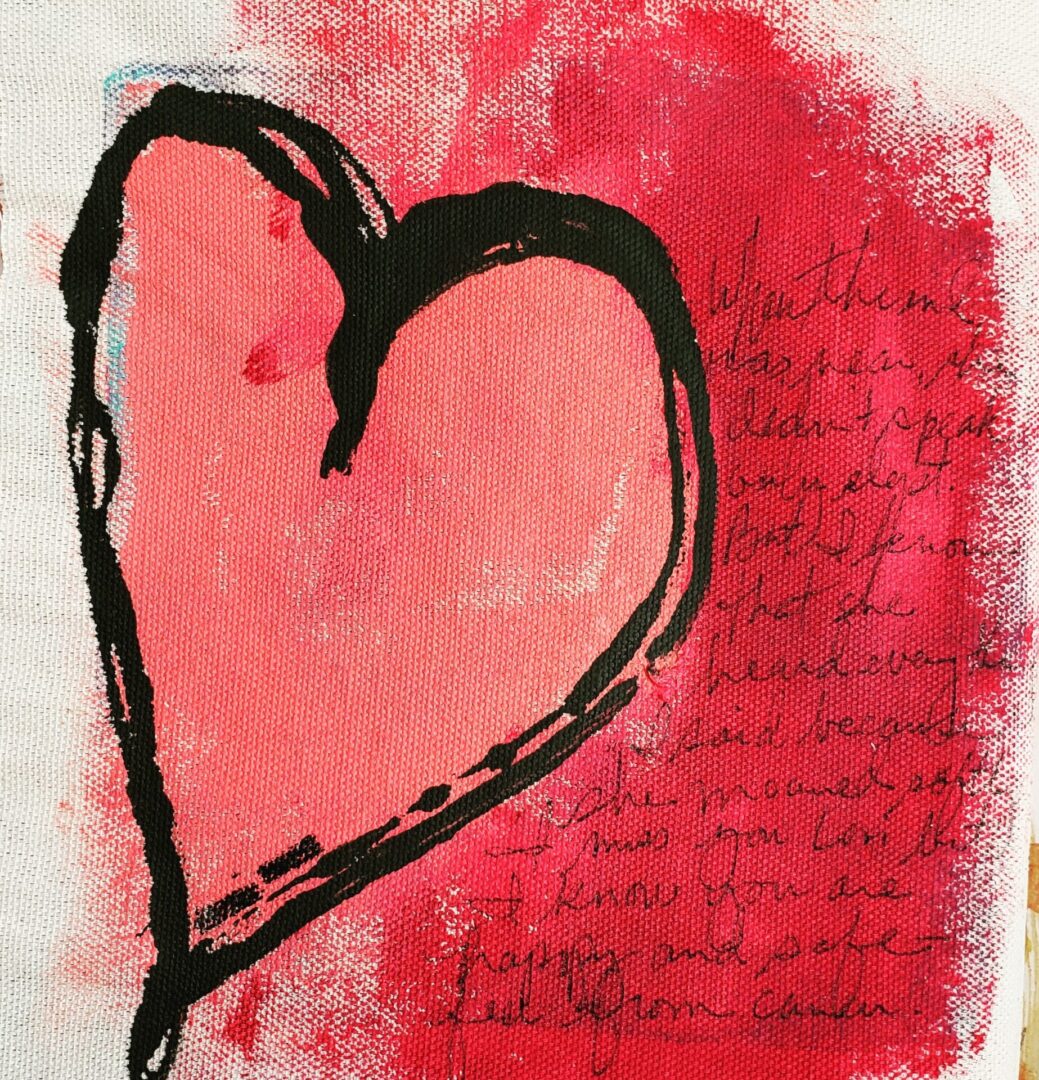 When the end
was near, she
didn't speak
only slept.
But I know
that she
heard every
I said because
she moaned soft
I miss you Lori but
I know you are
happy and safe
from cancer!